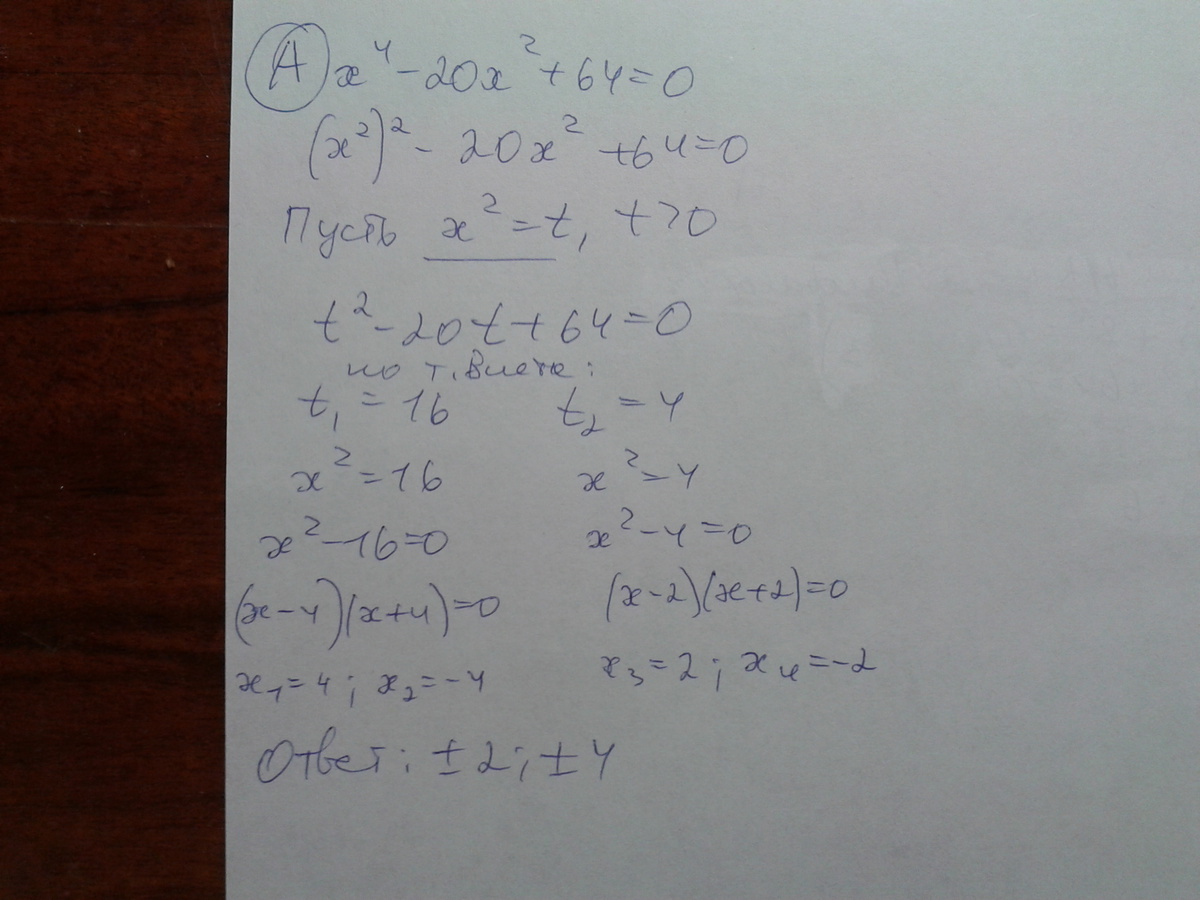 А x⁴-20x²+64=0
(x²)²- 20x² +64=0
Пусть x²=t, t>0
t²-20t+64=0
по т. Виета:
t₁=16 t₂=4
x²=16 x²=4
x²-16=0 x²-4=0
(x-4)(x+4)=0 (x-2)(x+2)=0
x₁=4; x₂=-4 x₃=2; x₄=-2
Ответ: ±2; ±4